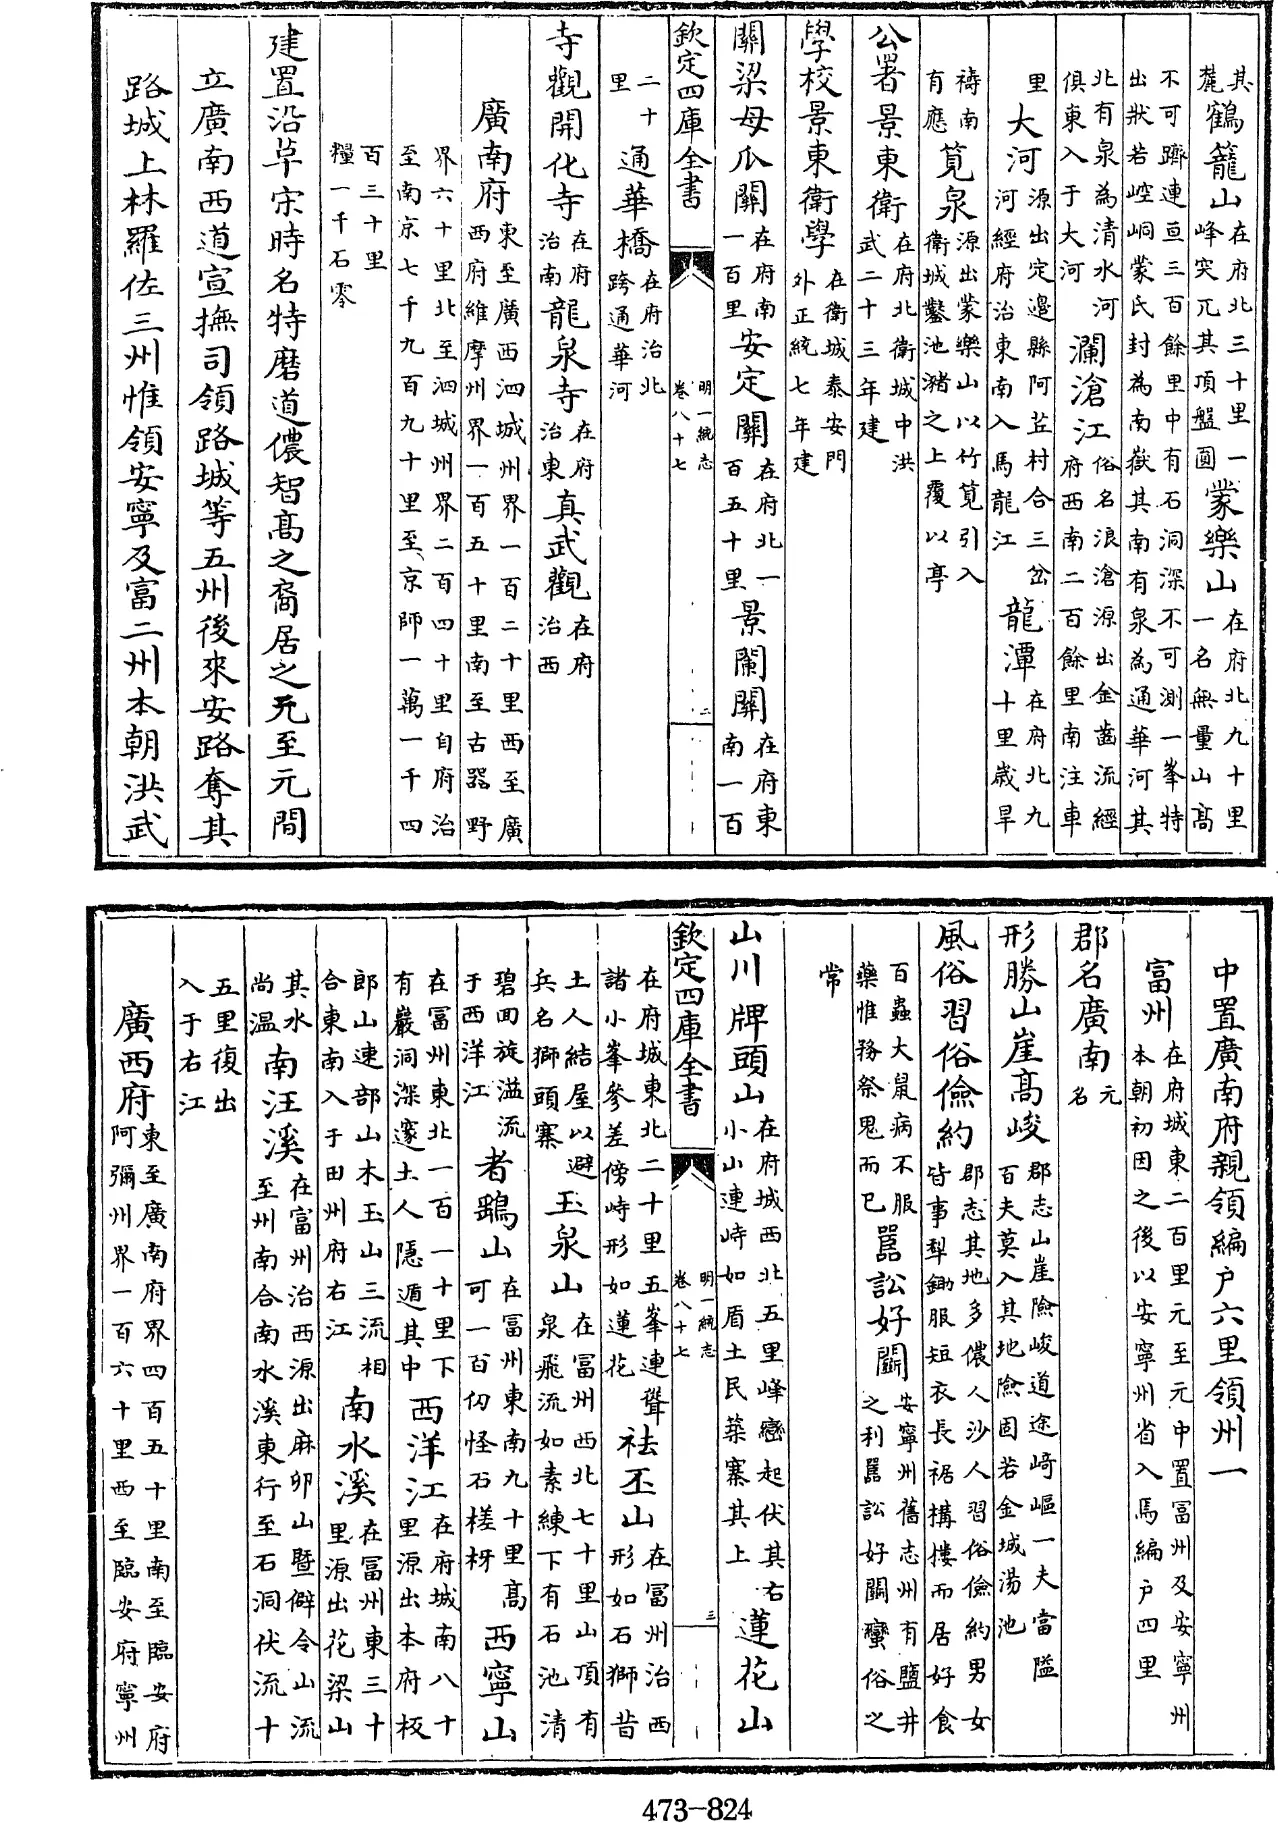 其麓鶴籠山在府北三十里一峰突兀其頂盤圓蒙樂山在府北九十里一名無量山髙
不可躋連亘三百餘里中有石洞深不可測一峯特出狀若崆峒蒙氏封為南嶽其南有泉為通華河其
北有泉為清水河俱東入于大河瀾滄江俗名浪滄源出金齒流經府西南二百餘里南注車
里大河源出定邊縣阿苴村合三岔河經府治東南入馬龍江龍潭在府北九十里歲旱
禱南有應筧泉源出蒙樂山以竹筧引入衛城鑿池瀦之上覆以亭
公署景東衛在府北衛城中洪武二十三年建
學校景東衛學在衛城泰安門外正統七年建
關梁母瓜關在府南一百里安定關在府北一百五十里景闌關在府東南一百
欽定四庫全書 明一統志卷八十七 二
二十里通華橋在府治北跨通華河
寺觀開化寺在府治南龍泉寺在府治東真武觀在府治西
廣南府東至廣西泗城州界一百二十里西至廣西府維摩州界一百五十里南至古器野
界六十里北至泗城州界二百四十里自府治至南京七千九百九十里至京師一萬一千四
百三十里糧一千石零
建置沿革宋時名特磨道儂智髙之裔居之元至元間
立廣南西道宣撫司領路城等五州後來安路奪其
路城上林羅佐三州惟領安寧及富二州本朝洪武
中置廣南府親領編户六里領州一
富州在府城東二百里元至元中置富州及安寧州本朝初因之後以安寧州省入焉編户四里
郡名廣南元名
形勝山崖髙峻郡志山崖險峻道途崎嶇一夫當隘百夫莫入其地險固若金城湯池
風俗習俗儉約郡志其地多儂人沙人習俗儉約男女皆事犁鋤服短衣長裾構樓而居好食
百蟲大鼠病不服藥惟務祭鬼而已嚚訟好鬭安寧州舊志州有鹽井之利嚚訟好鬭蠻俗之
常
山川牌頭山在府城西北五里峰巒起伏其右小山連峙如盾土民築寨其上蓮花山
欽定四庫全書 明一統志卷八十七 三
在府城東北二十里五峯連聳諸小峯參差傍峙形如蓮花祛丕山在富州治西形如石獅昔
土人結屋以避兵名獅頭寨玉泉山在富州西北七十里山頂有泉飛流如素練下有石池清
碧囬旋溢流于西洋江者鷂山在富州東南九十里髙可一百仞怪石槎枒西寧山
在富州東北一百一十里下有巖洞深邃土人隱遁其中西洋江在府城南八十里源出本府板
郎山速部山木玉山三流相合東南入于田州府右江南水溪在富州東三十里源出花梁山
其水尚温南汪溪在富州治西源出麻卯山暨僻令山流至州南合南水溪東行至石洞伏流十
五里復出入于右江
廣西府東至廣南府界四百五十里南至臨安府阿彌州界一百六十里西至臨安府寧州
473-824